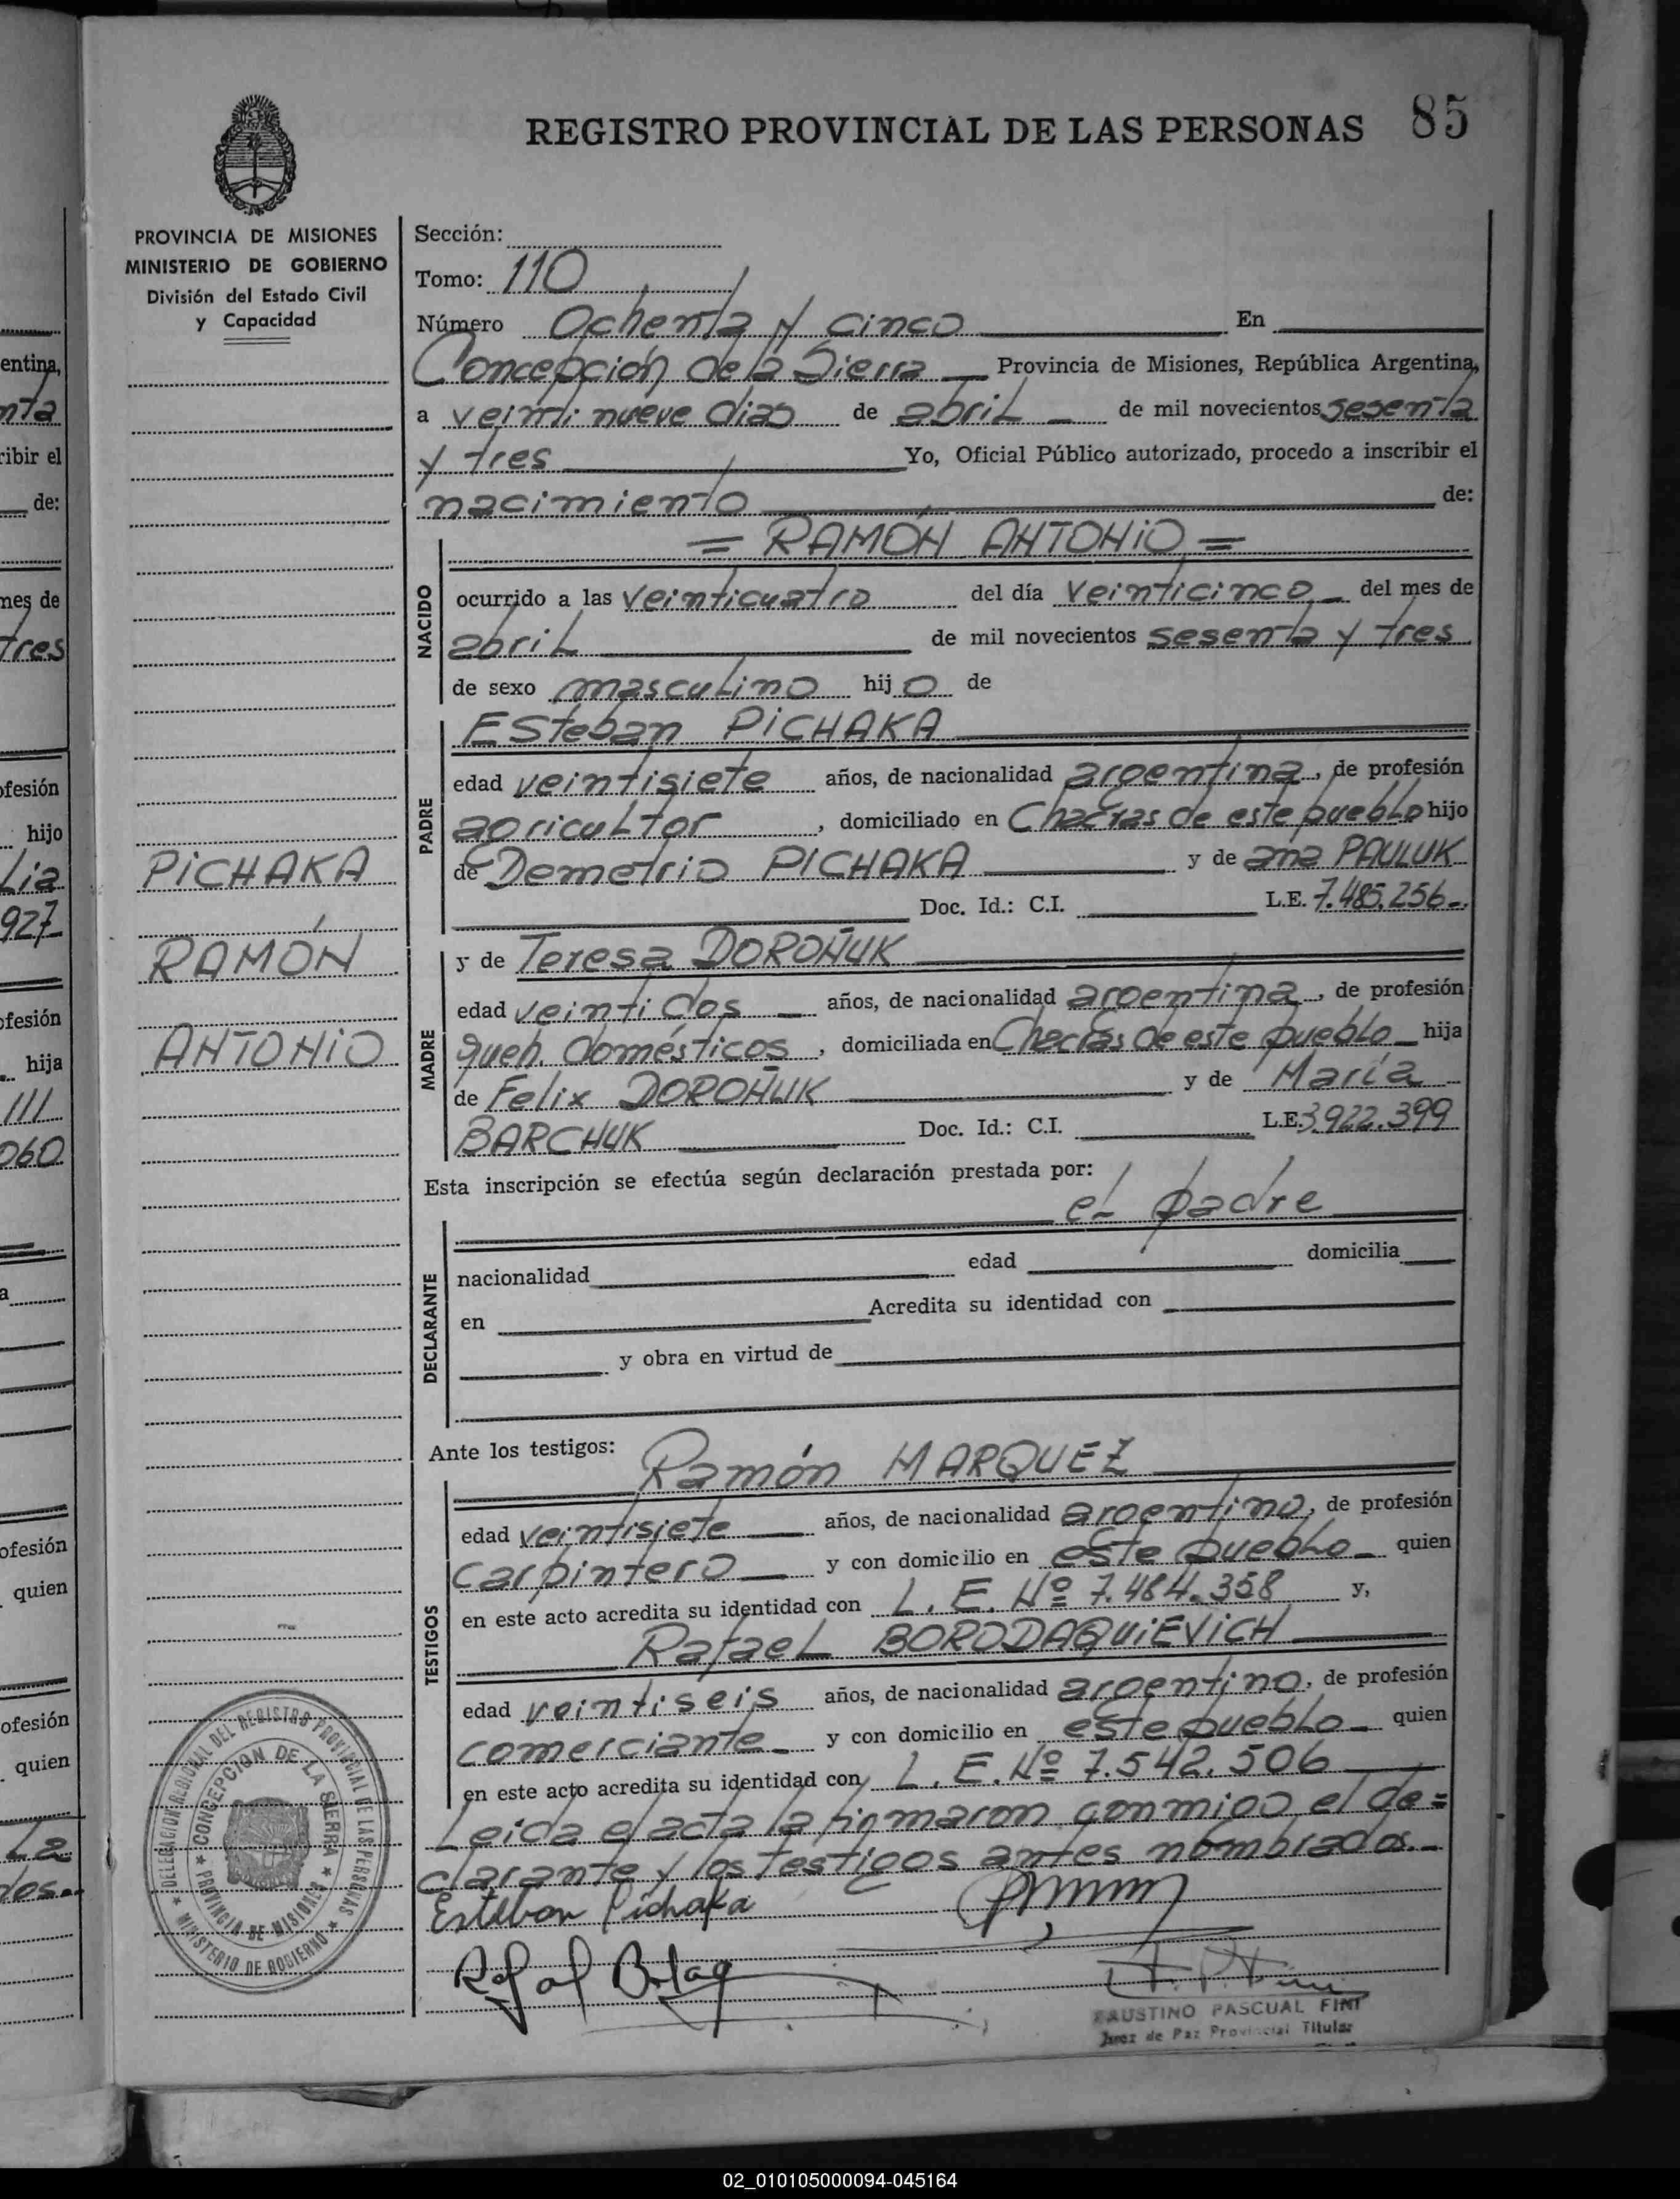 REGISTRO PROVINCIAL DE LAS PERSONAS 85
PROVINCIA DE MISIONES
MINISTERIO DE GOBIERNO
División del Estado Civil
y Capacidad
PICHAKA
RAMÓN
ANTONIO
Sección:
Tomo: 110
Número Ochenta y cinco En
Concepción de la Sierra Provincia de Misiones, República Argentina,
a veinti nueve dias de abril de mil novecientos sesenta
y tres Yo, Oficial Público autorizado, procedo a inscribir el
nacimiento de:
= RAMÓN ANTONIO =
NACIDO
ocurrido a las veinticuatro del día veinticinco del mes de
abril de mil novecientos sesenta y tres
de sexo masculino hijo de
Esteban PICHAKA
PADRE
edad veintisiete años, de nacionalidad argentina, de profesión
agricultor, domiciliado en Chacras de este pueblo hijo
de Demetrio PICHAKA y de ana PAULUK
Doc. Id.: C.I. L.E. 7.485.256.
y de Teresa DOROÑUK
MADRE
edad veinti dos años, de nacionalidad argentina, de profesión
queh. domésticos, domiciliada en Chacras de este pueblo hija
de Felix DOROÑUK y de María
BARCHUK Doc. Id.: C.I. L.E. 3.922.399
Esta inscripción se efectúa según declaración prestada por:
el padre
DECLARANTE
nacionalidad edad domicilia
en Acredita su identidad con
y obra en virtud de
Ante los testigos: Ramón MARQUEZ
TESTIGOS
edad veintisiete años, de nacionalidad argentino, de profesión
carpintero y con domicilio en este pueblo quien
en este acto acredita su identidad con L. E. Nº 7.484.358 y,
Rafael BORODAQUIEVICH
edad veintiseis años, de nacionalidad argentino, de profesión
comerciante y con domicilio en este pueblo quien
en este acto acredita su identidad con L. E. Nº 7.542.506
Leida el acta la firmaron conmigo el de=
clarante y los testigos antes nombrados.
Esteban Pichaka
FAUSTINO PASCUAL FINT
Juez de Paz Provincial Titular
DELEGACION REGIONAL DEL REGISTRO PROVINCIAL DE LAS PERSONAS
MINISTERIO DE GOBIERNO
CONCEPCION DE LA SIERRA
PROVINCIA DE MISIONES
entina,
nta
ribir el
de:
mes de
tres
ofesión
hijo
Lia
927
ofesión
hija
111
060
a
ofesión
quien
ofesión
quien
La
dos.
02_010105000094-045164